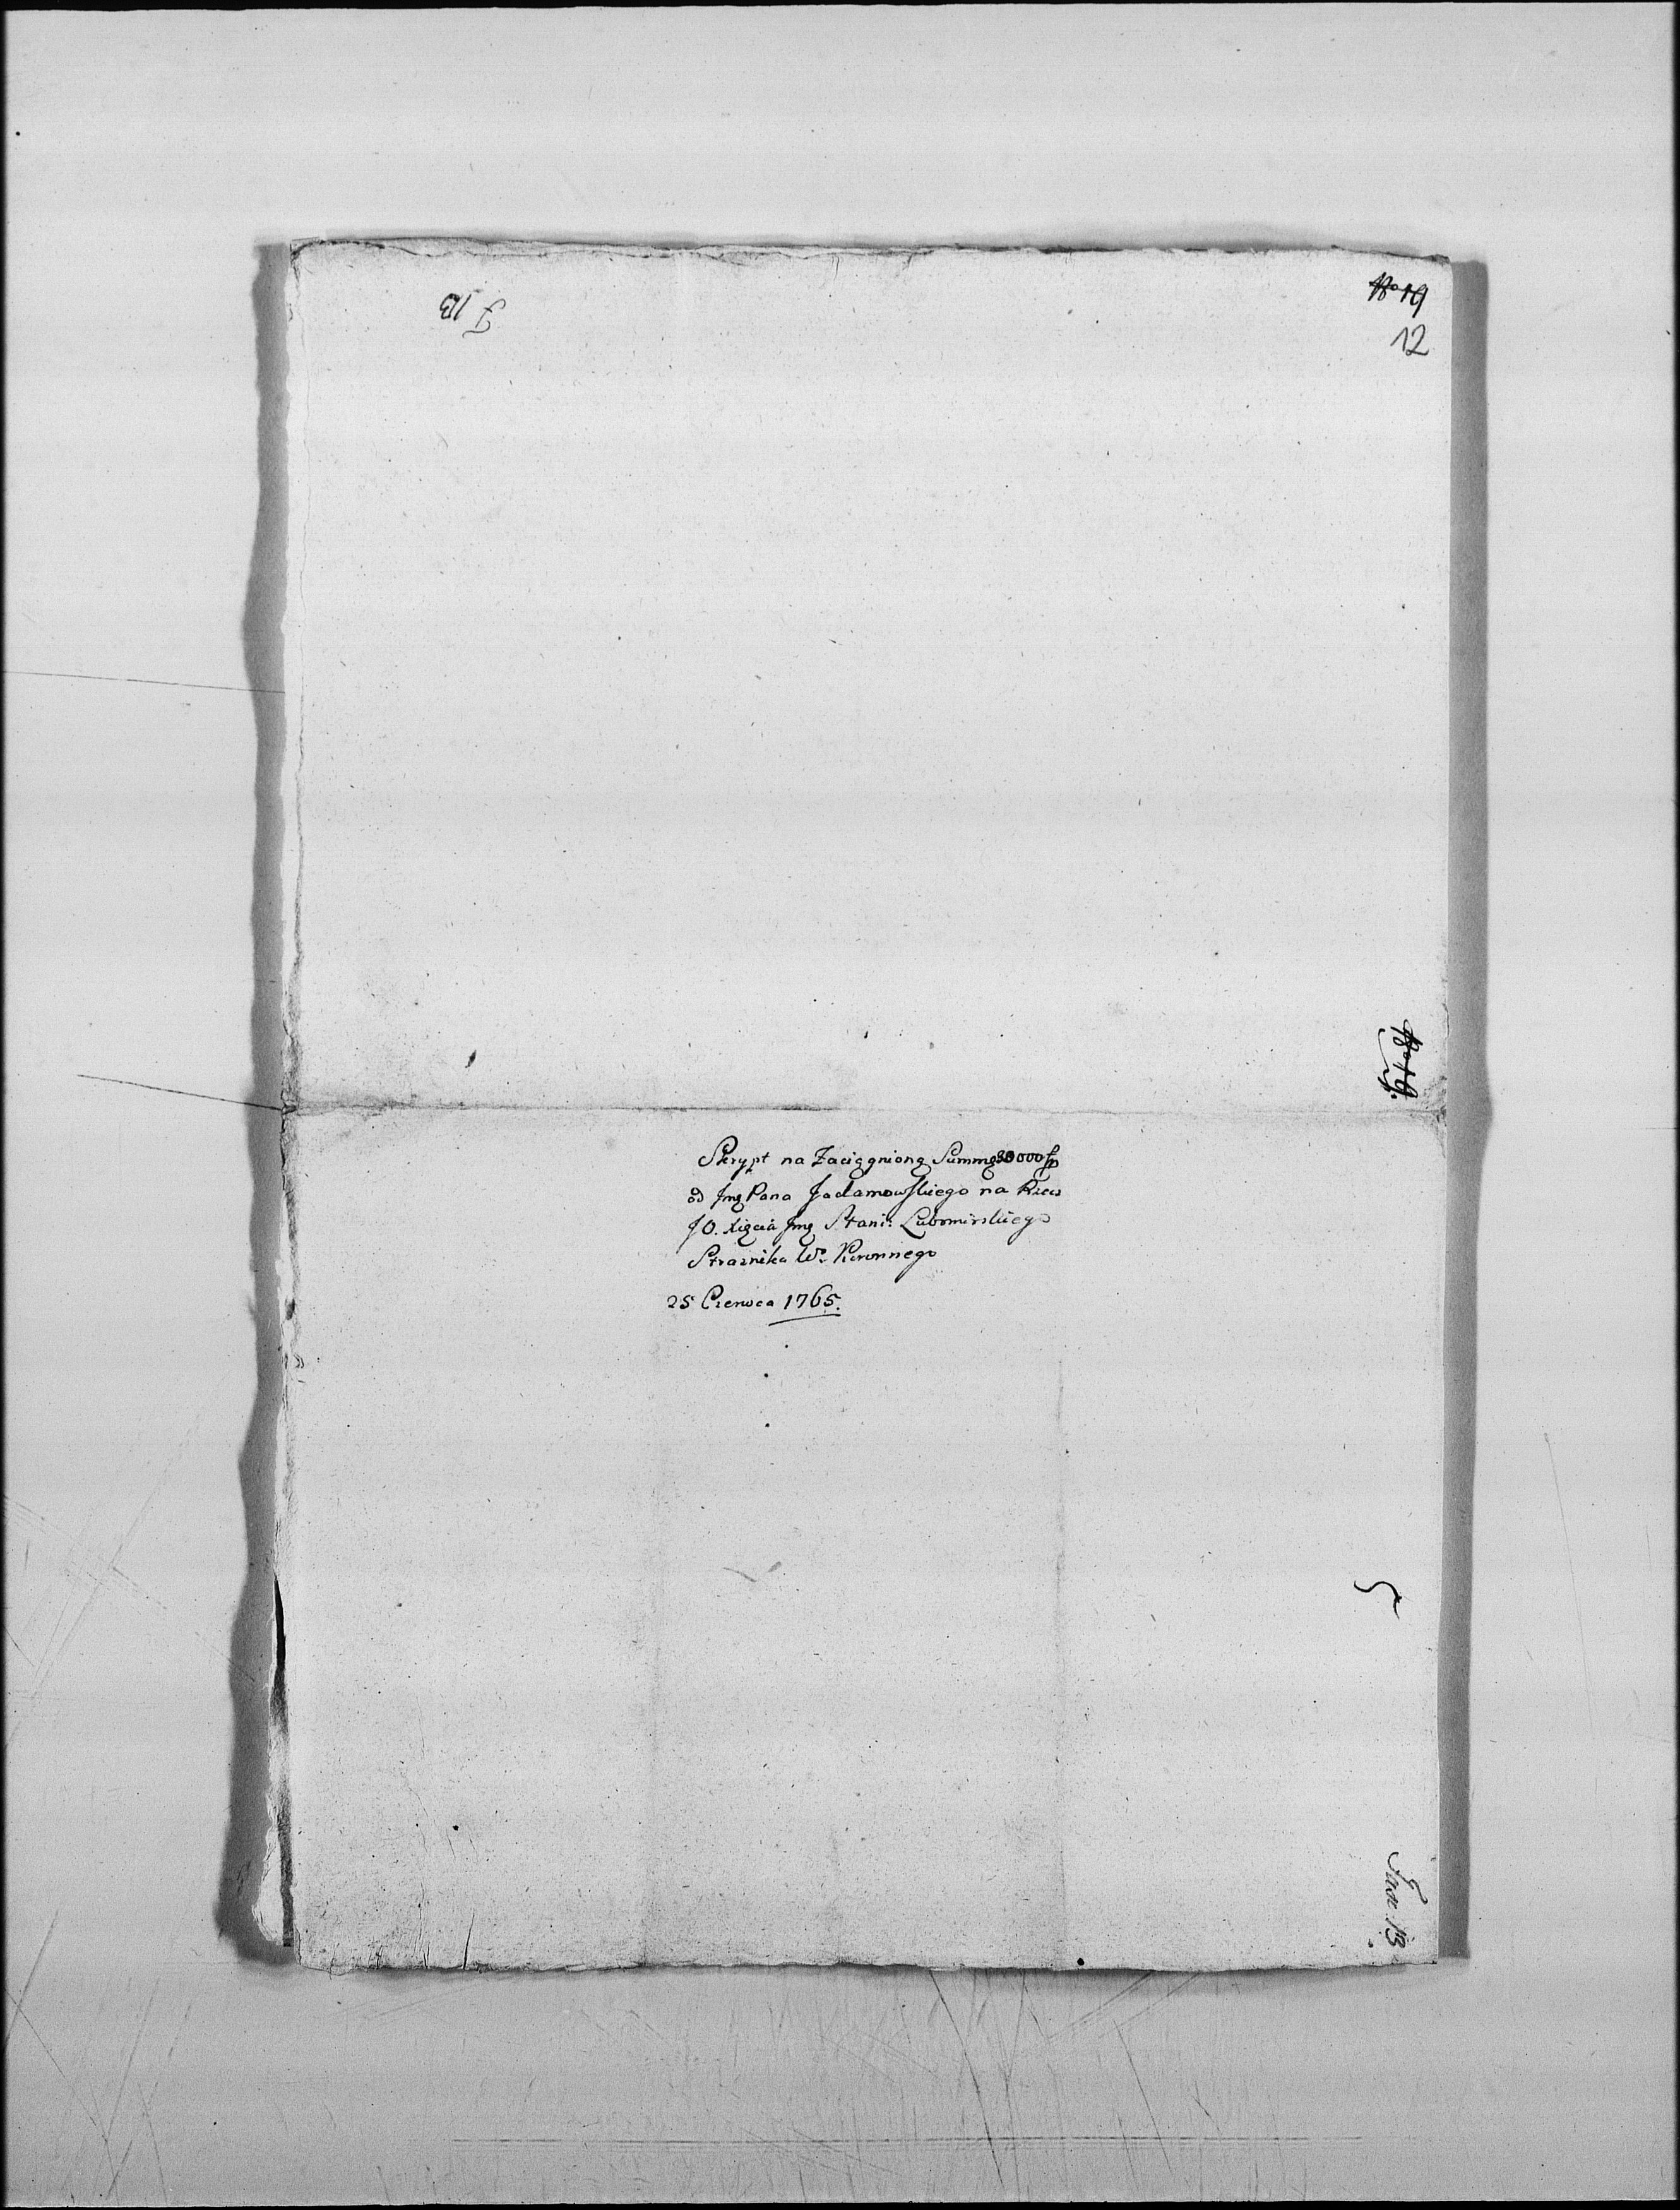 F 13
No 19
12
No 19.
Skrypt na Zaciągnioną Summę 30000 fp
od Jmg Pana Jadamowskiego na Rzecz
JO. Xięcia Jmg Stani: Lubomirskiego
Straznika Wo. Koronnego
25 Czerwca 1765.
5
Fasc. 13